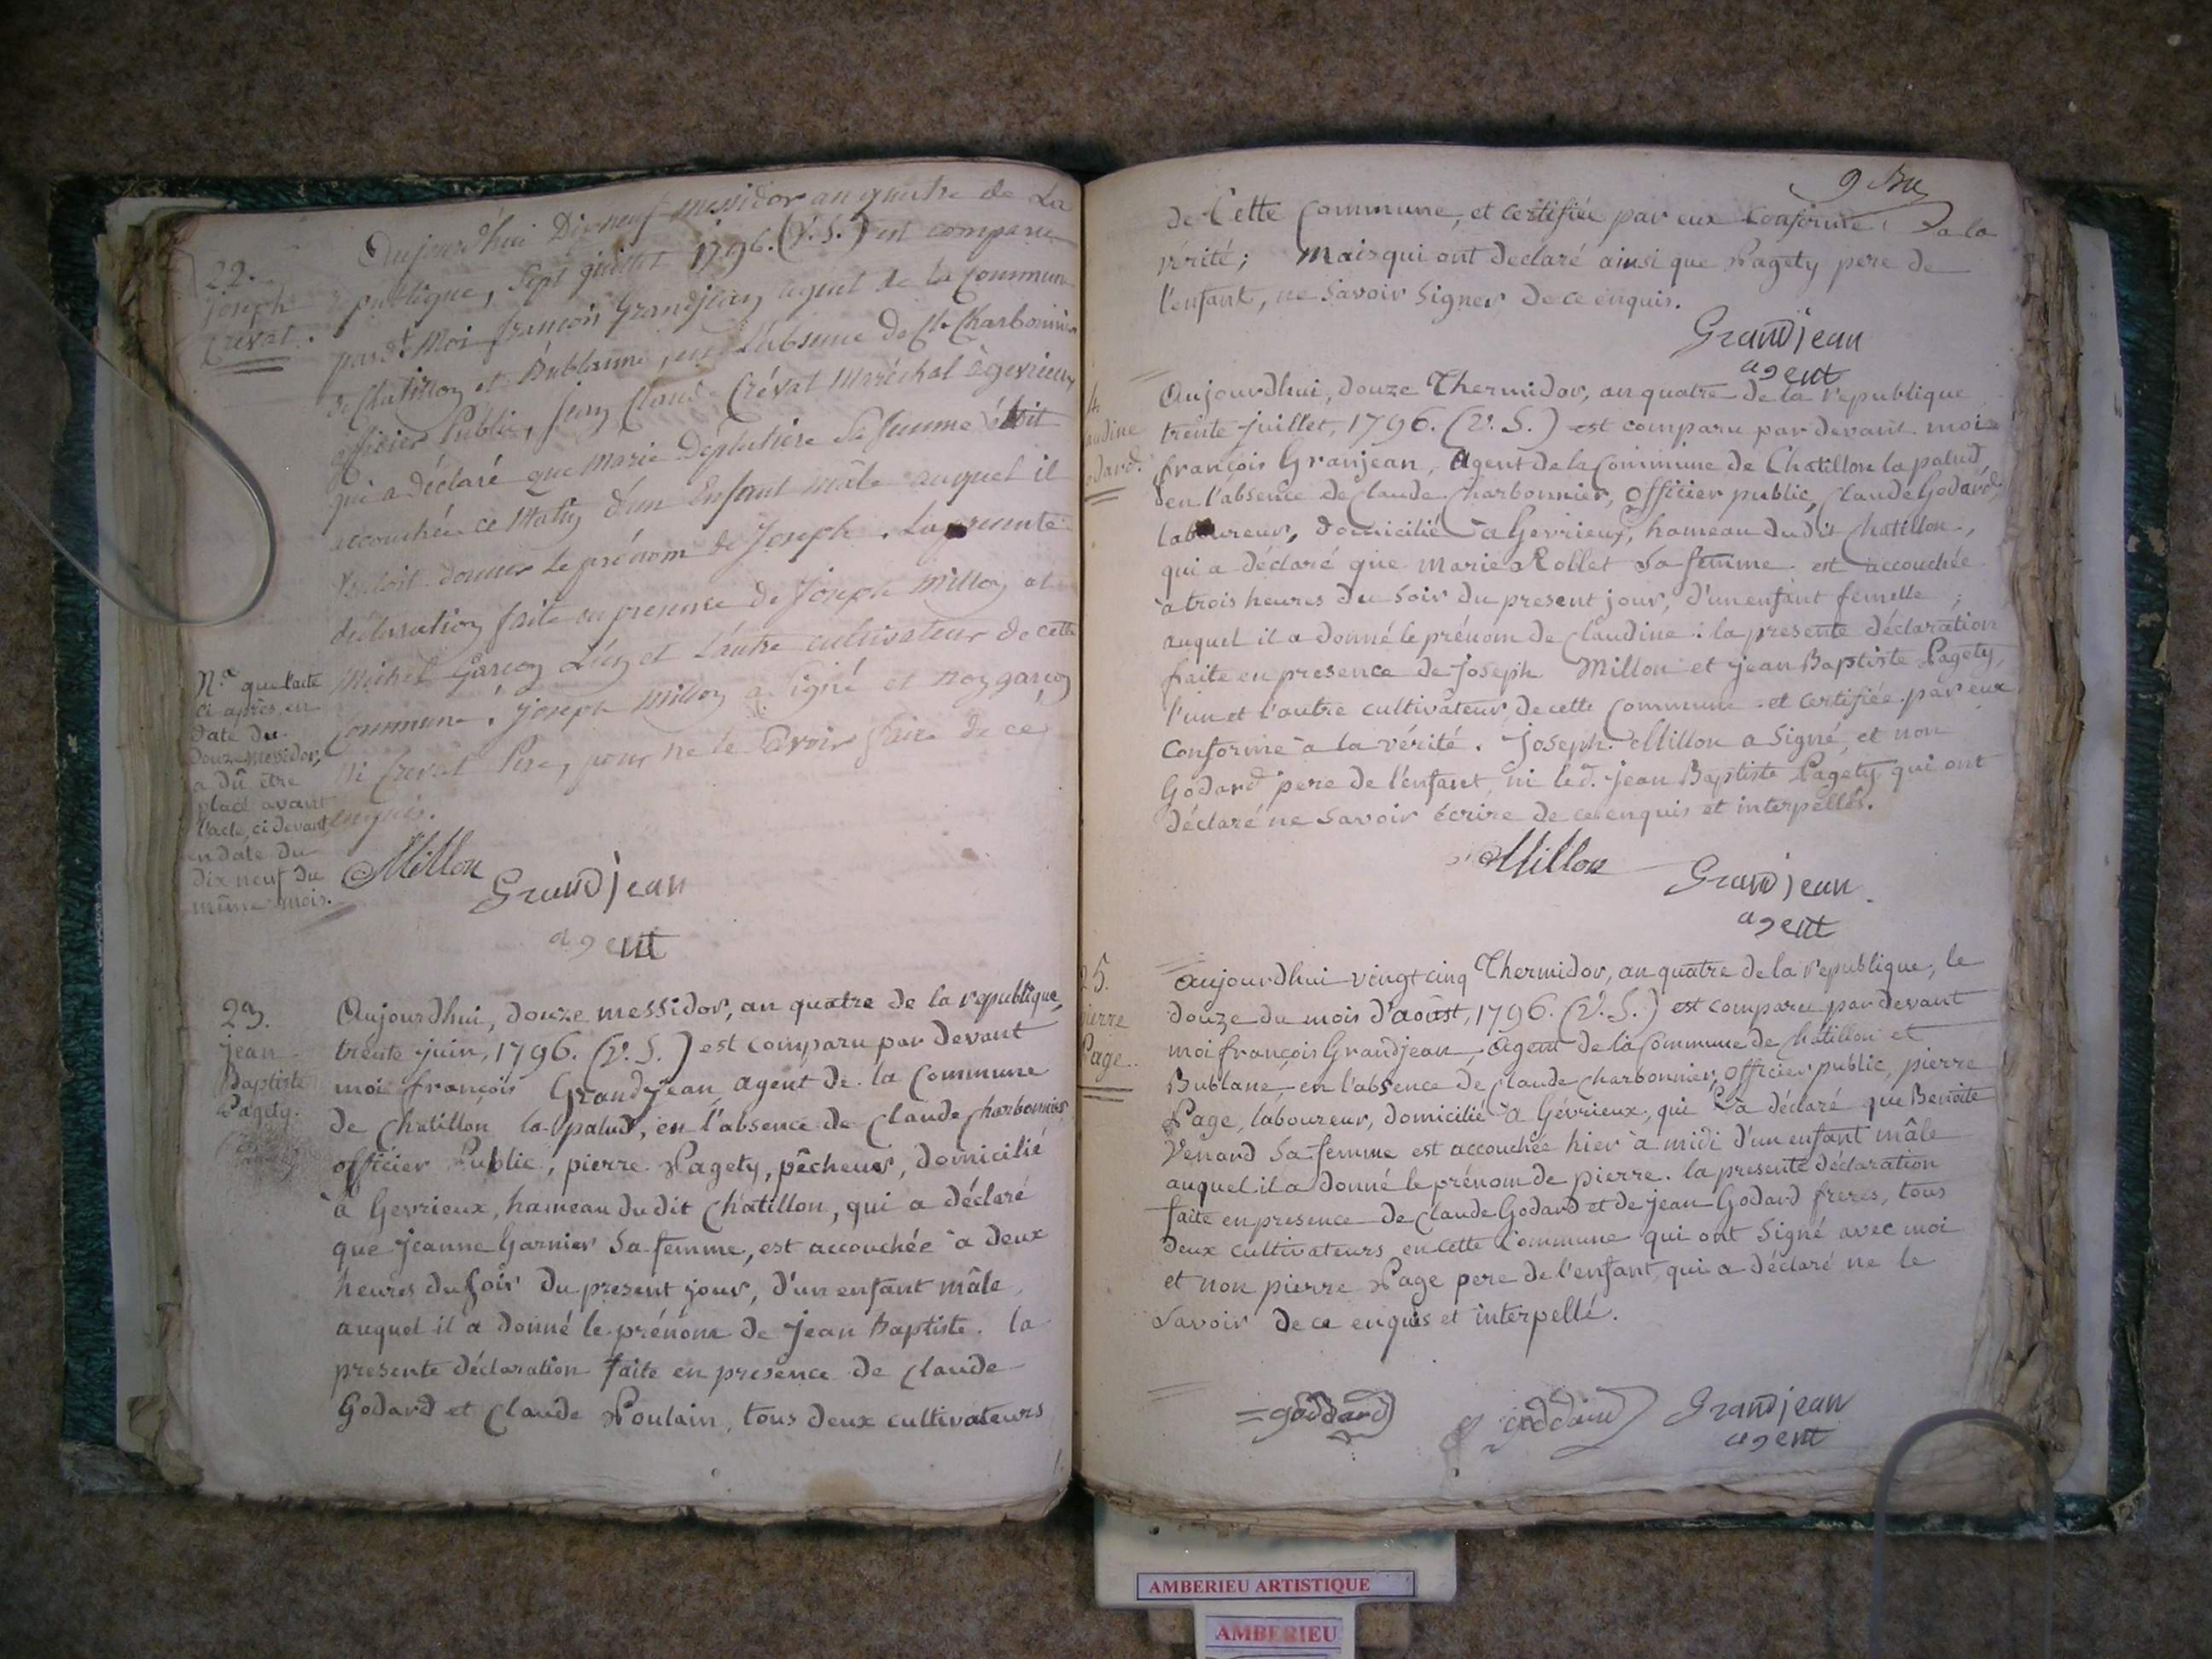 22.
joseph
Crevat.
Aujourd'hui Dixneuf messidor an quatre de La
republique, Sept juillet 1796. (V. S.) est comparu
pard.t Moi françois Grandjean agent de la Commune
de Chatillon et Bublanne, en L'absence de Cl.e Charbonnier
officier Public, jean Claude Crévat Maréchal à gevrieux
qui a déclaré que Marie Déplatière Sa femme étoit
accouchée ce Matin d'un Enfant mâle auquel il
Vouloit donner le prénom de Joseph. La presente
déclaration faite en presence de Joseph Millon et
Michel Garcon L'un et L'autre cultivateur de cette
Commune. joseph Millon a Signé et non garcon
Ni Crevat Pere, pour ne le Savoir faire de ce
enquis.
N.a que l'acte
ci après, en
date du
douze messidor,
a dû être
placé avant
l'acte, ci devant
en date du
dix neuf du
même mois.
Millon
Grandjean
agent
23.
jean
Baptiste
Pagety.
Aujourdhui, douze messidor, an quatre de la republique,
trente juin, 1796. (V. S.) est comparu par devant
moi françois Grandjean agent de la Commune
de Chatillon la palud, en l'absence de Claude Charbonnier
officier Public, pierre Pagety, pêcheur, domicilié
à Gevrieux, hameau du dit Chatillon, qui a déclaré
que jeanne Garnier Sa femme, est accouchée à deux
heures du Soir du present jour, d'un enfant mâle,
auquel il a donné le prénom de jean Baptiste. la
presente déclaration faite en presence de Claude
Godard et Claude Poulain, tous deux cultivateurs
9
de Cette Commune, et certifiée par eux Conforme à la
vérité; Mais qui ont declaré ainsi que Pagety pere de
l'enfant, ne Savoir Signer de ce enquis.
Grandjean
agent
4.
audine
odard.
Aujourdhui, douze Thermidor, an quatre de la republique,
trente juillet, 1796. (V. S.) est comparu par devant moi
françois Granjean, Agent de la Commune de Chatillon la palud
en l'absence de Claude Charbonnier, Officier public, Claude Godard,
laboureur, domicilié à Gevrieux, hameau du dit Chatillon,
qui a déclaré que Marie Rollet Sa femme est accouchée
à trois heures du Soir du present jour, d'un enfant femelle;
auquel il a donné le prénom de Claudine: la presente déclaration
faite en presence de joseph Millon et jean Baptiste Pagety,
l'un et l'autre cultivateur de cette Commune et certifiée par eux
Conforme à la vérité. joseph Millon a Signé, et non
Godard pere de l'enfant, ni le d. jean Baptiste Pagety qui ont
déclaré ne Savoir écrire de ce enquis et interpellés.
Millon
Grandjean
agent
25.
pierre
Page.
Aujourdhui vingt cinq Thermidor, an quatre de la republique, le
douze du mois d'aoust, 1796. (V. S.) est comparu par devant
moi françois Grandjean, Agent de la Commune de Chatillon et
Bublane, en l'absence de Claude Charbonnier, Officier public, pierre
Page, laboureur, domicilié à Gévrieux, qui a déclaré que Benoite
Venard Sa femme est accouchée hier à midi d'un enfant mâle
auquel il a donné le prénom de pierre. la presente déclaration
faite en presence de Claude Godard et de jean Godard freres, tous
deux cultivateurs en cette Commune qui ont Signé avec moi
et non pierre Page pere de l'enfant, qui a déclaré ne le
Savoir de ce enquis et interpellé.
goddard
goddard
Grandjean
agent
AMBERIEU ARTISTIQUE
AMBERIEU